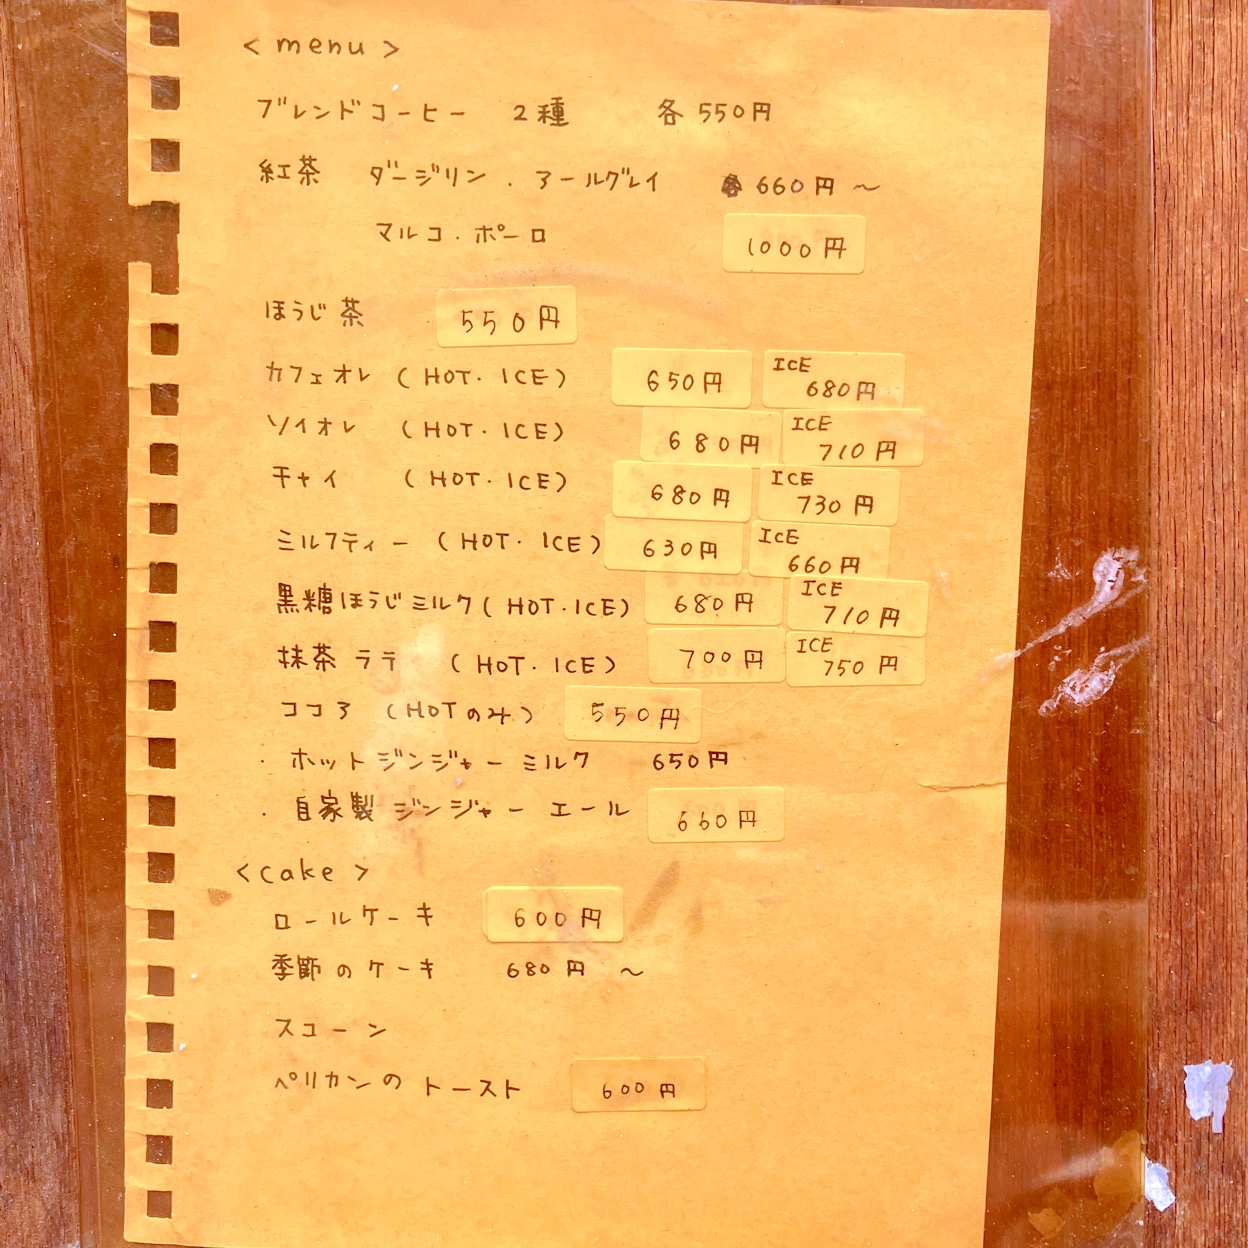 < menu >
ブレンドコーヒー 2種 各550円
紅茶 ダージリン．アールグレイ 660円〜
マルコ．ポーロ 1000円
ほうじ茶 550円
カフェオレ (HOT・ICE) 650円 ICE 680円
ソイオレ (HOT・ICE) 680円 ICE 710円
チャイ (HOT・ICE) 680円 ICE 730円
ミルクティー (HOT・ICE) 630円 ICE 660円
黒糖ほうじミルク(HOT・ICE) 680円 ICE 710円
抹茶ラテ (HOT・ICE) 700円 ICE 750円
ココア (HOTのみ) 550円
・ホットジンジャーミルク 650円
・自家製ジンジャーエール 660円
<cake>
ロールケーキ 600円
季節のケーキ 680円 〜
スコーン
ペリカンのトースト 600円